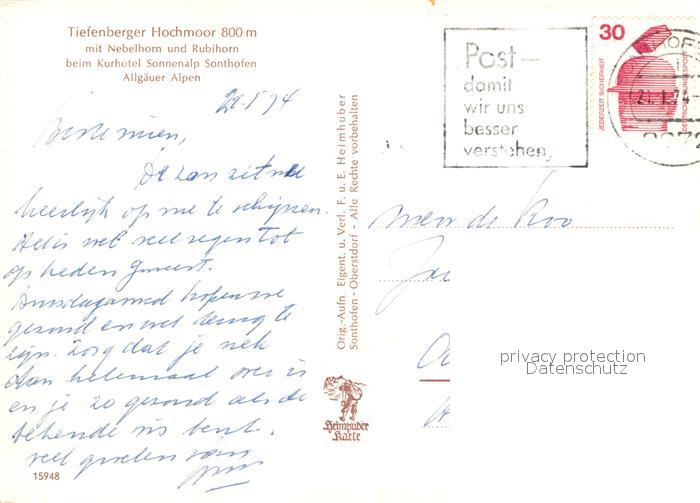 Tiefenberger Hochmoor 800 m
mit Nebelhorn und Rubihorn
beim Kurhotel Sonnenalp Sonthofen
Allgäuer Alpen
De zon zit nu
heerlijk op me te schijnen.
Het is wel veel regen tot
op heden geweest.
Dinsdagavond hopen we
gezond en wel terug te
zijn. Zorg dat je nek
dan helemaal over is
en je zo gezond als de
bekende vis bent.
veel groeten van
15948
Orig.-Aufn. Eigent. u. Verl. F. u. E. Heimhuber
Sonthofen-Oberstdorf - Alle Rechte vorbehalten
Heimhuber
Karte
Post-
damit
wir uns
besser
verstehen
30
JEDERZEIT SICHERHEIT
DEUTSCHE BUNDESPOST
21.1.74
Mevr de Koo
privacy protection
Datenschutz